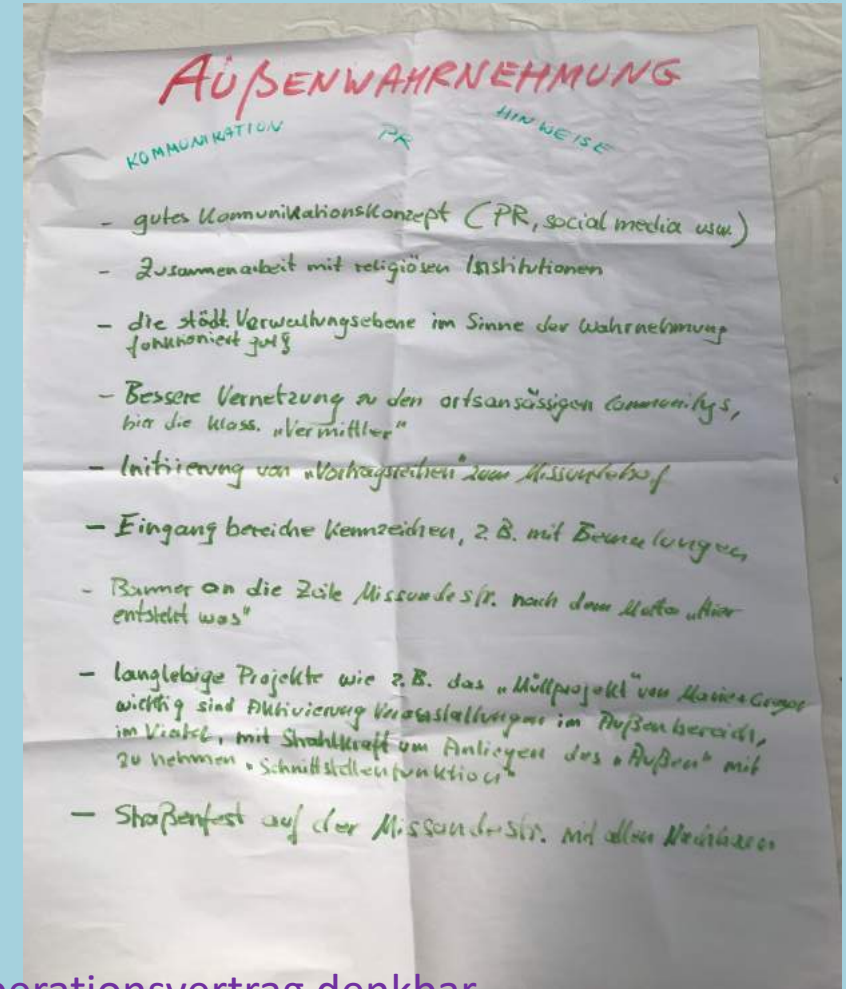 AUßENWAHRNEHMUNG
KOMMUNIKATION PR HINWEISE
- gutes Kommunikationskonzept (PR, social media usw.)
- Zusammenarbeit mit religiösen Institutionen
- die städt. Verwaltungsebene im Sinne der Wahrnehmung
funktioniert gut
- Bessere Vernetzung zu den ortsansässigen Communitys,
hier die klass. „Vermittler"
- Initiierung von „Vortragsreihen" zum Missundehof
- Eingang bereiche Kennzeichen, z.B. mit Bemalungen
- Banner an die Zeile Missundestr. nach dem Motto „Hier
entsteht was"
- langlebige Projekte wie z.B. das „Müllprojekt" von Marie+Gregor
wichtig sind Aktivierung Veranstaltungen im Außenbereich,
im Viertel, mit Strahlkraft um Anliegen des „Außen" mit
zu nehmen „Schnittstellenfunktion"
- Straßenfest auf der Missundestr. mit allen Nachbarn
operationsvertrag denkbar